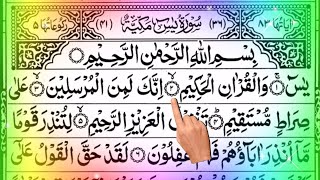 اٰیَاتُهَا ۸۳ (۳۶) سُوْرَةُ یٰسٓ مَكِّیَّةٌ (۴۱) رُكُوْعَاتُهَا ۵
بِسْمِ اللّٰهِ الرَّحْمٰنِ الرَّحِیْمِ
یٰسٓ وَالْقُرْاٰنِ الْحَكِیْمِ اِنَّكَ لَمِنَ الْمُرْسَلِیْنَ عَلٰى
صِرَاطٍ مُّسْتَقِیْمٍ تَنْزِیْلَ الْعَزِیْزِ الرَّحِیْمِ لِتُنْذِرَ قَوْمًا
مَّاۤ اُنْذِرَ اٰبَآؤُهُمْ فَهُمْ غٰفِلُوْنَ لَقَدْ حَقَّ الْقَوْلُ عَلٰۤى